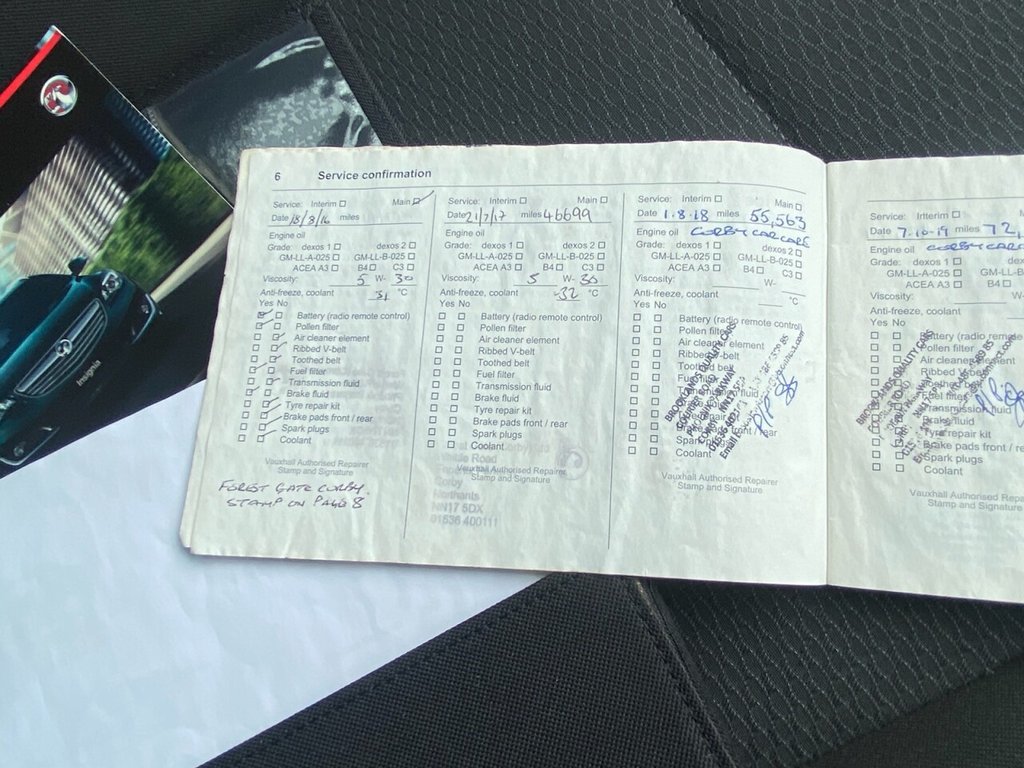 Insignia
6 Service confirmation
Service: Interim Main
Date 18/8/16 miles
Engine oil
Grade: dexos 1 dexos 2
GM-LL-A-025 GM-LL-B-025
ACEA A3 B4 C3
Viscosity: 5 W- 30
Anti-freeze, coolant 31 °C
Yes No
Battery (radio remote control)
Pollen filter
Air cleaner element
Ribbed V-belt
Toothed belt
Fuel filter
Transmission fluid
Brake fluid
Tyre repair kit
Brake pads front / rear
Spark plugs
Coolant
Vauxhall Authorised Repairer
Stamp and Signature
FOREST GATE CORBY.
STAMP ON PAGE 8
Service: Interim Main
Date 21/7/17 miles 46699
Engine oil
Grade: dexos 1 dexos 2
GM-LL-A-025 GM-LL-B-025
ACEA A3 B4 C3
Viscosity: 5 W- 30
Anti-freeze, coolant -32 °C
Yes No
Battery (radio remote control)
Pollen filter
Air cleaner element
Ribbed V-belt
Toothed belt
Fuel filter
Transmission fluid
Brake fluid
Tyre repair kit
Brake pads front / rear
Spark plugs
Coolant
Vauxhall Authorised Repairer
Stamp and Signature
Road
Corby
Northants
NN17 5DX
01536 400111
Service: Interim Main
Date 1.8.18 miles 55,563
Engine oil CORBY CAR CARE
Grade: dexos 1 dexos 2
GM-LL-A-025 GM-LL-B-025
ACEA A3 B4 C3
Viscosity: W-
Anti-freeze, coolant °C
Yes No
Battery (radio remote control)
Pollen filter
Air cleaner element
Ribbed V-belt
Toothed belt
Fuel filter
Transmission fluid
Brake fluid
Tyre repair kit
Brake pads front / rear
Spark plugs
Coolant
Vauxhall Authorised Repairer
Stamp and Signature
BROOKLANDS QUALITY CARS
Service: Interim
Date 7.10.19 miles 72,
Engine oil CORBY CAR C
Grade: dexos 1
GM-LL-A-025 GM-LL-B
ACEA A3 B4
Viscosity:
Anti-freeze, coolant
Yes No
Battery (radio remote
Pollen filter
Air cleaner element
Ribbed V-belt
Toothed belt
Fuel filter
Transmission fluid
Brake fluid
Tyre repair kit
Brake pads front / re
Spark plugs
Coolant
Vauxhall Authorised Repairer
Stamp and Signature
BROOKLANDS QUALITY CARS